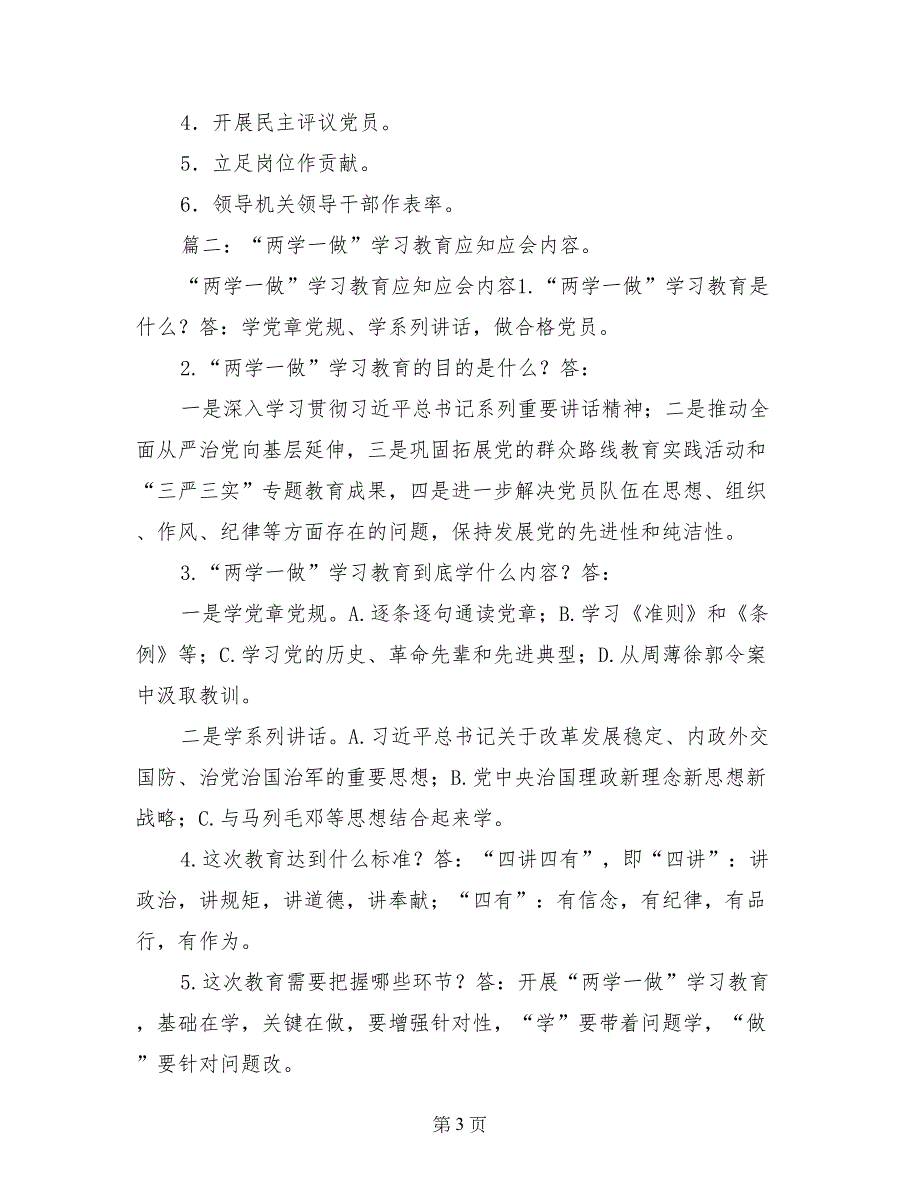 4．开展民主评议党员。
5．立足岗位作贡献。
6．领导机关领导干部作表率。
篇二：“两学一做”学习教育应知应会内容。
“两学一做”学习教育应知应会内容1.“两学一做”学习教育是
什么？答：学党章党规、学系列讲话，做合格党员。
2.“两学一做”学习教育的目的是什么？答：
一是深入学习贯彻习近平总书记系列重要讲话精神；二是推动全
面从严治党向基层延伸，三是巩固拓展党的群众路线教育实践活动和
“三严三实”专题教育成果，四是进一步解决党员队伍在思想、组织
、作风、纪律等方面存在的问题，保持发展党的先进性和纯洁性。
3.“两学一做”学习教育到底学什么内容？答：
一是学党章党规。A.逐条逐句通读党章；B.学习《准则》和《条
例》等；C.学习党的历史、革命先辈和先进典型；D.从周薄徐郭令案
中汲取教训。
二是学系列讲话。A.习近平总书记关于改革发展稳定、内政外交
国防、治党治国治军的重要思想；B.党中央治国理政新理念新思想新
战略；C.与马列毛邓等思想结合起来学。
4.这次教育达到什么标准？答：“四讲四有”，即“四讲”：讲
政治，讲规矩，讲道德，讲奉献；“四有”：有信念，有纪律，有品
行，有作为。
5.这次教育需要把握哪些环节？答：开展“两学一做”学习教育
，基础在学，关键在做，要增强针对性，“学”要带着问题学，“做
”要针对问题改。
第 3 页